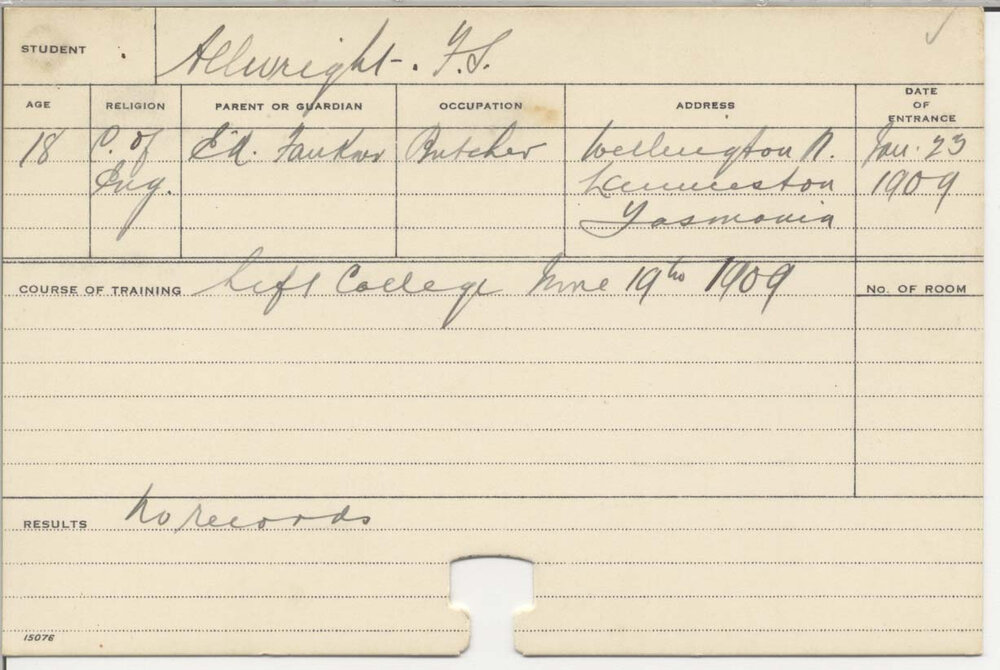 STUDENT Allwright. F.S.
AGE RELIGION PARENT OR GUARDIAN OCCUPATION ADDRESS DATE OF ENTRANCE
18 C. of Butcher Wellington Jan. 23
Eng. Launceston 1909
Tasmania
COURSE OF TRAINING Left College June 19th 1909 No. OF ROOM
RESULTS No records
15076